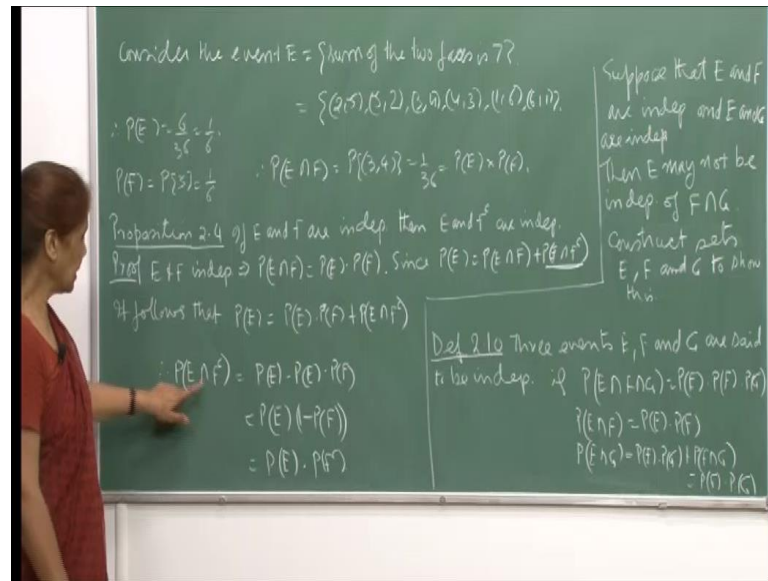 Consider the event E = {sum of the two faces is 7}.
= {(2,5),(5,2),(3,4),(4,3),(1,6),(6,1)}.
∴ P(E) = 6/36 = 1/6.
P(F) = P{3} = 1/6
∴ P(E ∩ F) = P{(3,4)} = 1/36 = P(E) × P(F).
Proposition 2.4 If E and F are indep. then E and F^c are indep.
Proof E & F indep ⇒ P(E∩F) = P(E)·P(F). Since P(E) = P(E∩F) + P(E∩F^c)
It follows that P(E) = P(E)·P(F) + P(E∩F^c)
∴ P(E∩F^c) = P(E) - P(E)·P(F)
= P(E) (1-P(F))
= P(E)·P(F^c)
Suppose that E and F
are indep and E and G
are indep
Then E may not be
indep of F∩G.
Construct sets
E, F and G to show
this.
Def 2.10 Three events E, F and G are said
to be indep. if P(E∩F∩G) = P(E)·P(F)·P(G)
P(E∩F) = P(E)·P(F)
P(E∩G) = P(E)·P(G), P(F∩G)
= P(F)·P(G)